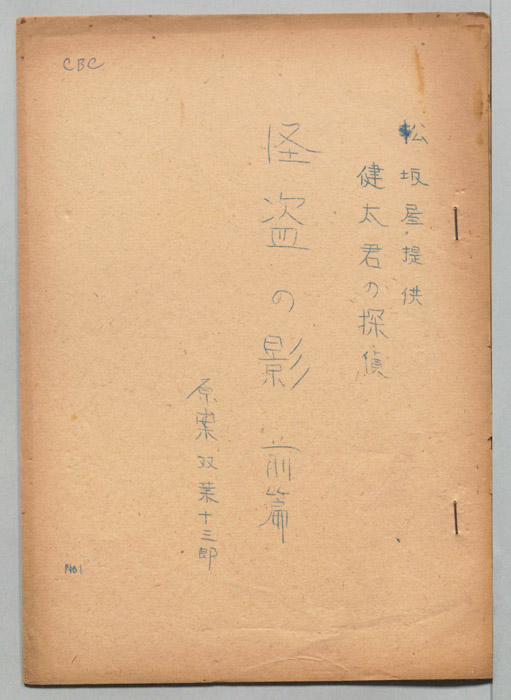 CBC
松坂屋・提供
健太君の探偵
怪盗の影 前篇
原案 双葉十三郎
No1